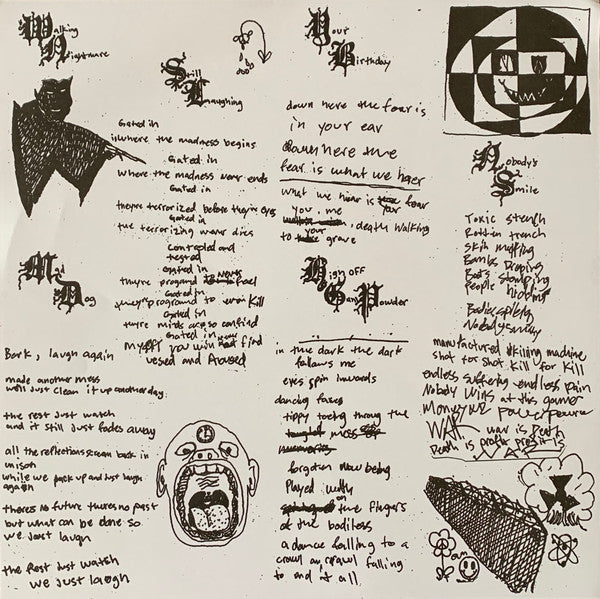 Walking
Nightmare
Still
Laughing
Gated in
is where the madness begins
Gated in
where the madness never ends
Gated in
theyre terrorized before their eyes
Gated in
the terrorizing never dies
Controled and
tested
Gated in
theyre programd to feel
Gated in
theyre programd to Kill
Gated in
there minds are so confind
Gated in
you will not find
used and Abused
Mad
Dog
Bark, laugh again
made another mess
we'll just clean it up another day.
the rest just watch
and it still just fades away
all the reflections scream back in
unison
while we pack up and just laugh
again
theres no future theres no past
but what can be done so
we Just laugh
the Rest Just watch
we Just laugh
Your
Birthday
down here the fear is
in your ear
down here the
fear is what we hear
what we hear is fear
you, me
, death walking
to your grave
High off
Gun Powder
in the dark the dark
follows me
eyes spin inwards
dancing faces
tippy toeing throug the
mess
forgoten now being
Played with
on the fingers
of the bodiless
a dance falling to a
crawl a crawl falling
to end it all
Nobody's
Smile
Toxic stench
Rotten trench
Skin melting
Bombs Droping
Boots stomping
People hiding
Bodies
Nobody
manufactured killing machine
shot for shot kill for kill
endless suffering endless pain
Nobody Wins at this game
Money power
WAR war is Death
Death is profit profit is
WAR